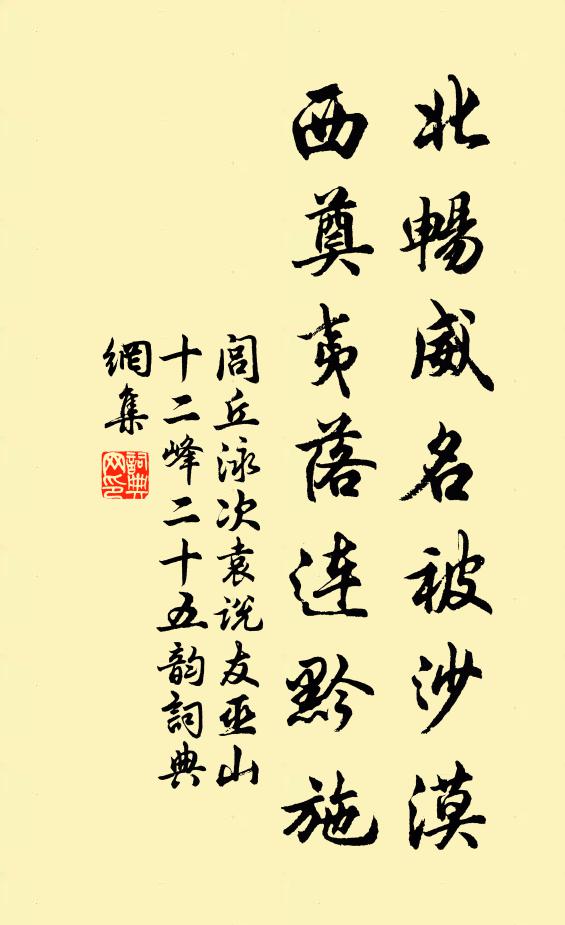 北暢威名被沙漠
西奠夷落連黔施
閭丘泳次袁说友巫山
十二峰二十五韵詞典
網集
詞典網印